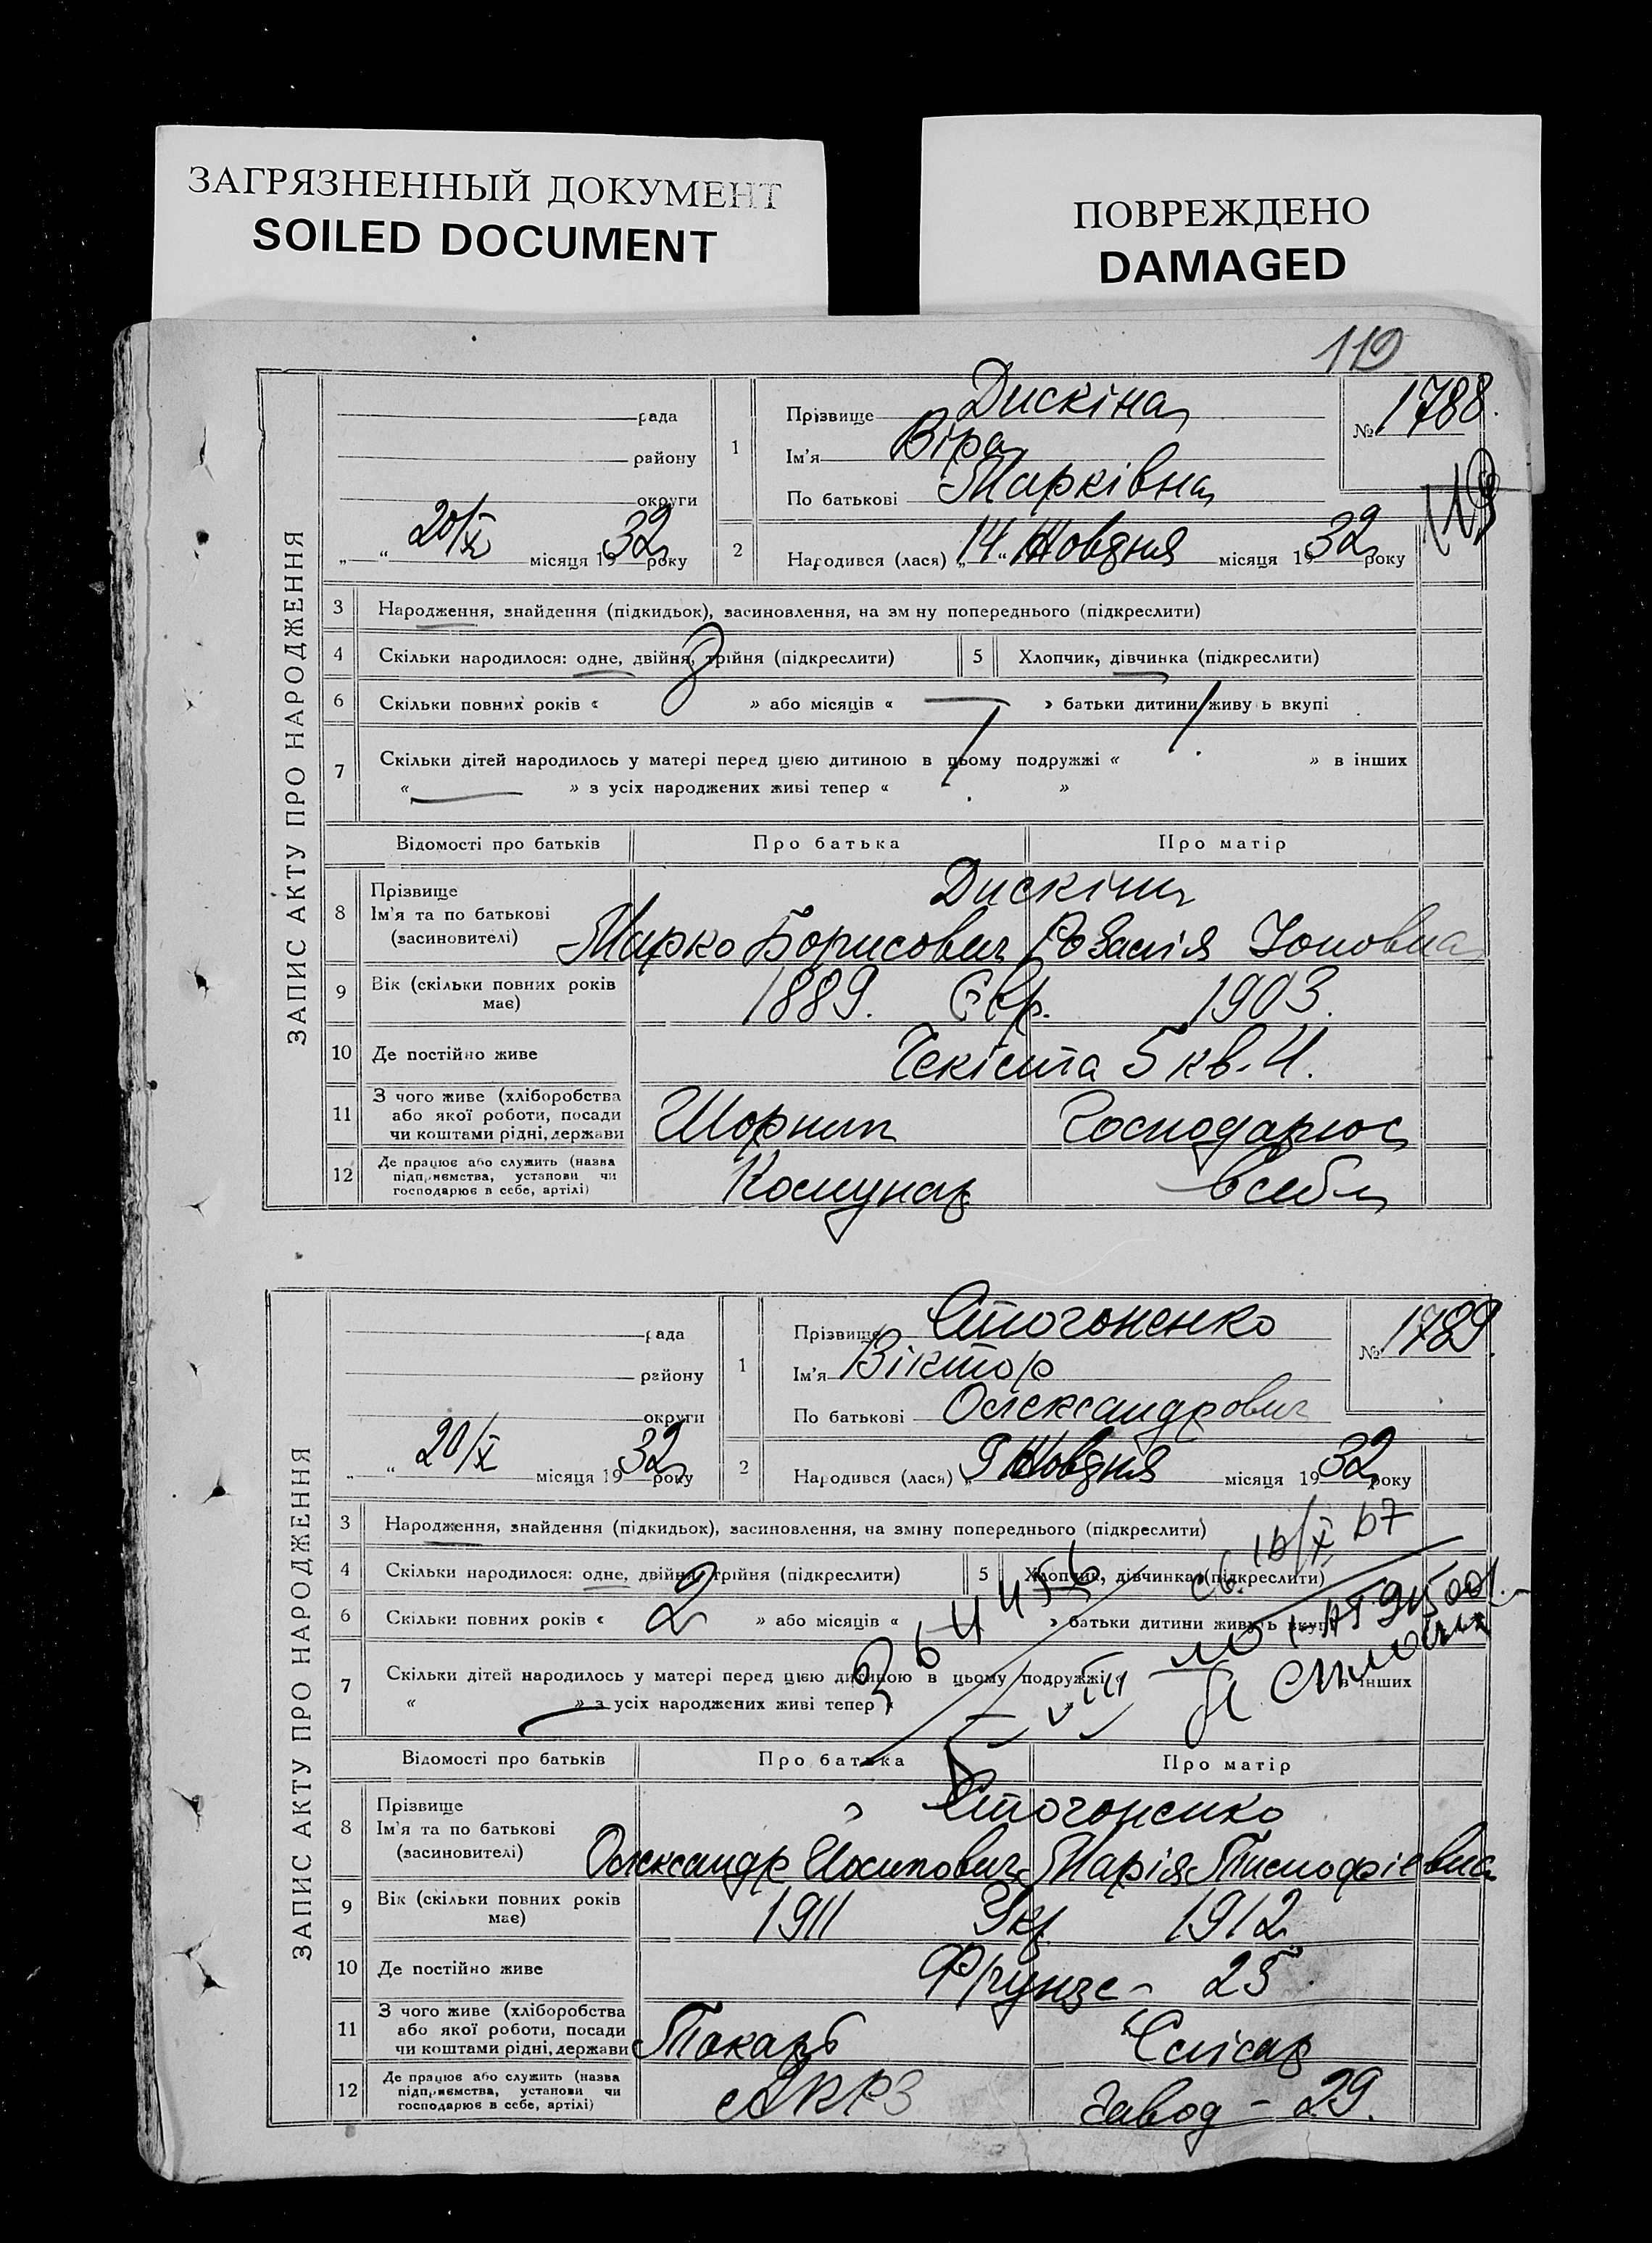 ЗАГРЯЗНЕННЫЙ ДОКУМЕНТ
SOILED DOCUMENT
ПОВРЕЖДЕНО
DAMAGED
ЗАПИС АКТУ ПРО НАРОДЖЕННЯ
рада
району
округи
„ “ 20/X місяця 1932 року
1
Прізвище Дискіна
Ім'я Віра
По батькові Марківна
№ 1788.
2
Народився (лася) „14“ Жовдня місяця 1932 року
3 Народження, знайдення (підкидьок), засиновлення, на зм ну попереднього (підкреслити)
4 Скільки народилося: одне, двійня, трійня (підкреслити)
5 Хлопчик, дівчинка (підкреслити)
6 Скільки повних років « » або місяців « — » батьки дитини живу ь вкупі
7 Скільки дітей народилось у матері перед цією дитиною в цьому подружжі « » в інших
« — » з усіх народжених живі тепер « »
Відомості про батьків Про батька Про матір
8 Прізвище
Ім'я та по батькові
(засиновителі)
Дискіни
Марко Борисович Розалія
9 Вік (скільки повних років має)
1889. Євр. 1903.
10 Де постійно живе
Чекіста 5 кв. 4.
11 З чого живе (хліборобства або якої роботи, посади чи коштами рідні, держави
Шорник Господарює
12 Де працює або служить (назва підприємства, установи чи господарює в себе, артілі)
Комунар в себя
ЗАПИС АКТУ ПРО НАРОДЖЕННЯ
рада
району
округи
„ “ 20/X місяця 1932 року
1
Прізвище Стогоненко
Ім'я Віктор
По батькові Олександрович
№ 1789.
2
Народився (лася) „9 Жовдня місяця 1932 року
3 Народження, знайдення (підкидьок), засиновлення, на зміну попереднього (підкреслити)
4 Скільки народилося: одне, двійня, трійня (підкреслити)
5 Хлопчик, дівчинка (підкреслити)
6 Скільки повних років « 2 » або місяців « » батьки дитини живуть вкупі
7 Скільки дітей народилось у матері перед цією дитиною в цьому подружжі в інших
« » з усіх народжених живі тепер «
Відомості про батьків Про батька Про матір
8 Прізвище
Ім'я та по батькові
(засиновителі)
Стогоненко
Олександр Иосипович Марія Тимофіевна
9 Вік (скільки повних років має)
1911 Укр. 1912.
10 Де постійно живе
Фрунзе - 25
11 З чого живе (хліборобства або якої роботи, посади чи коштами рідні, держави
Токарь Слісар
12 Де працює або служить (назва підприємства, установи чи господарює в себе, артілі)
Завод - 29.